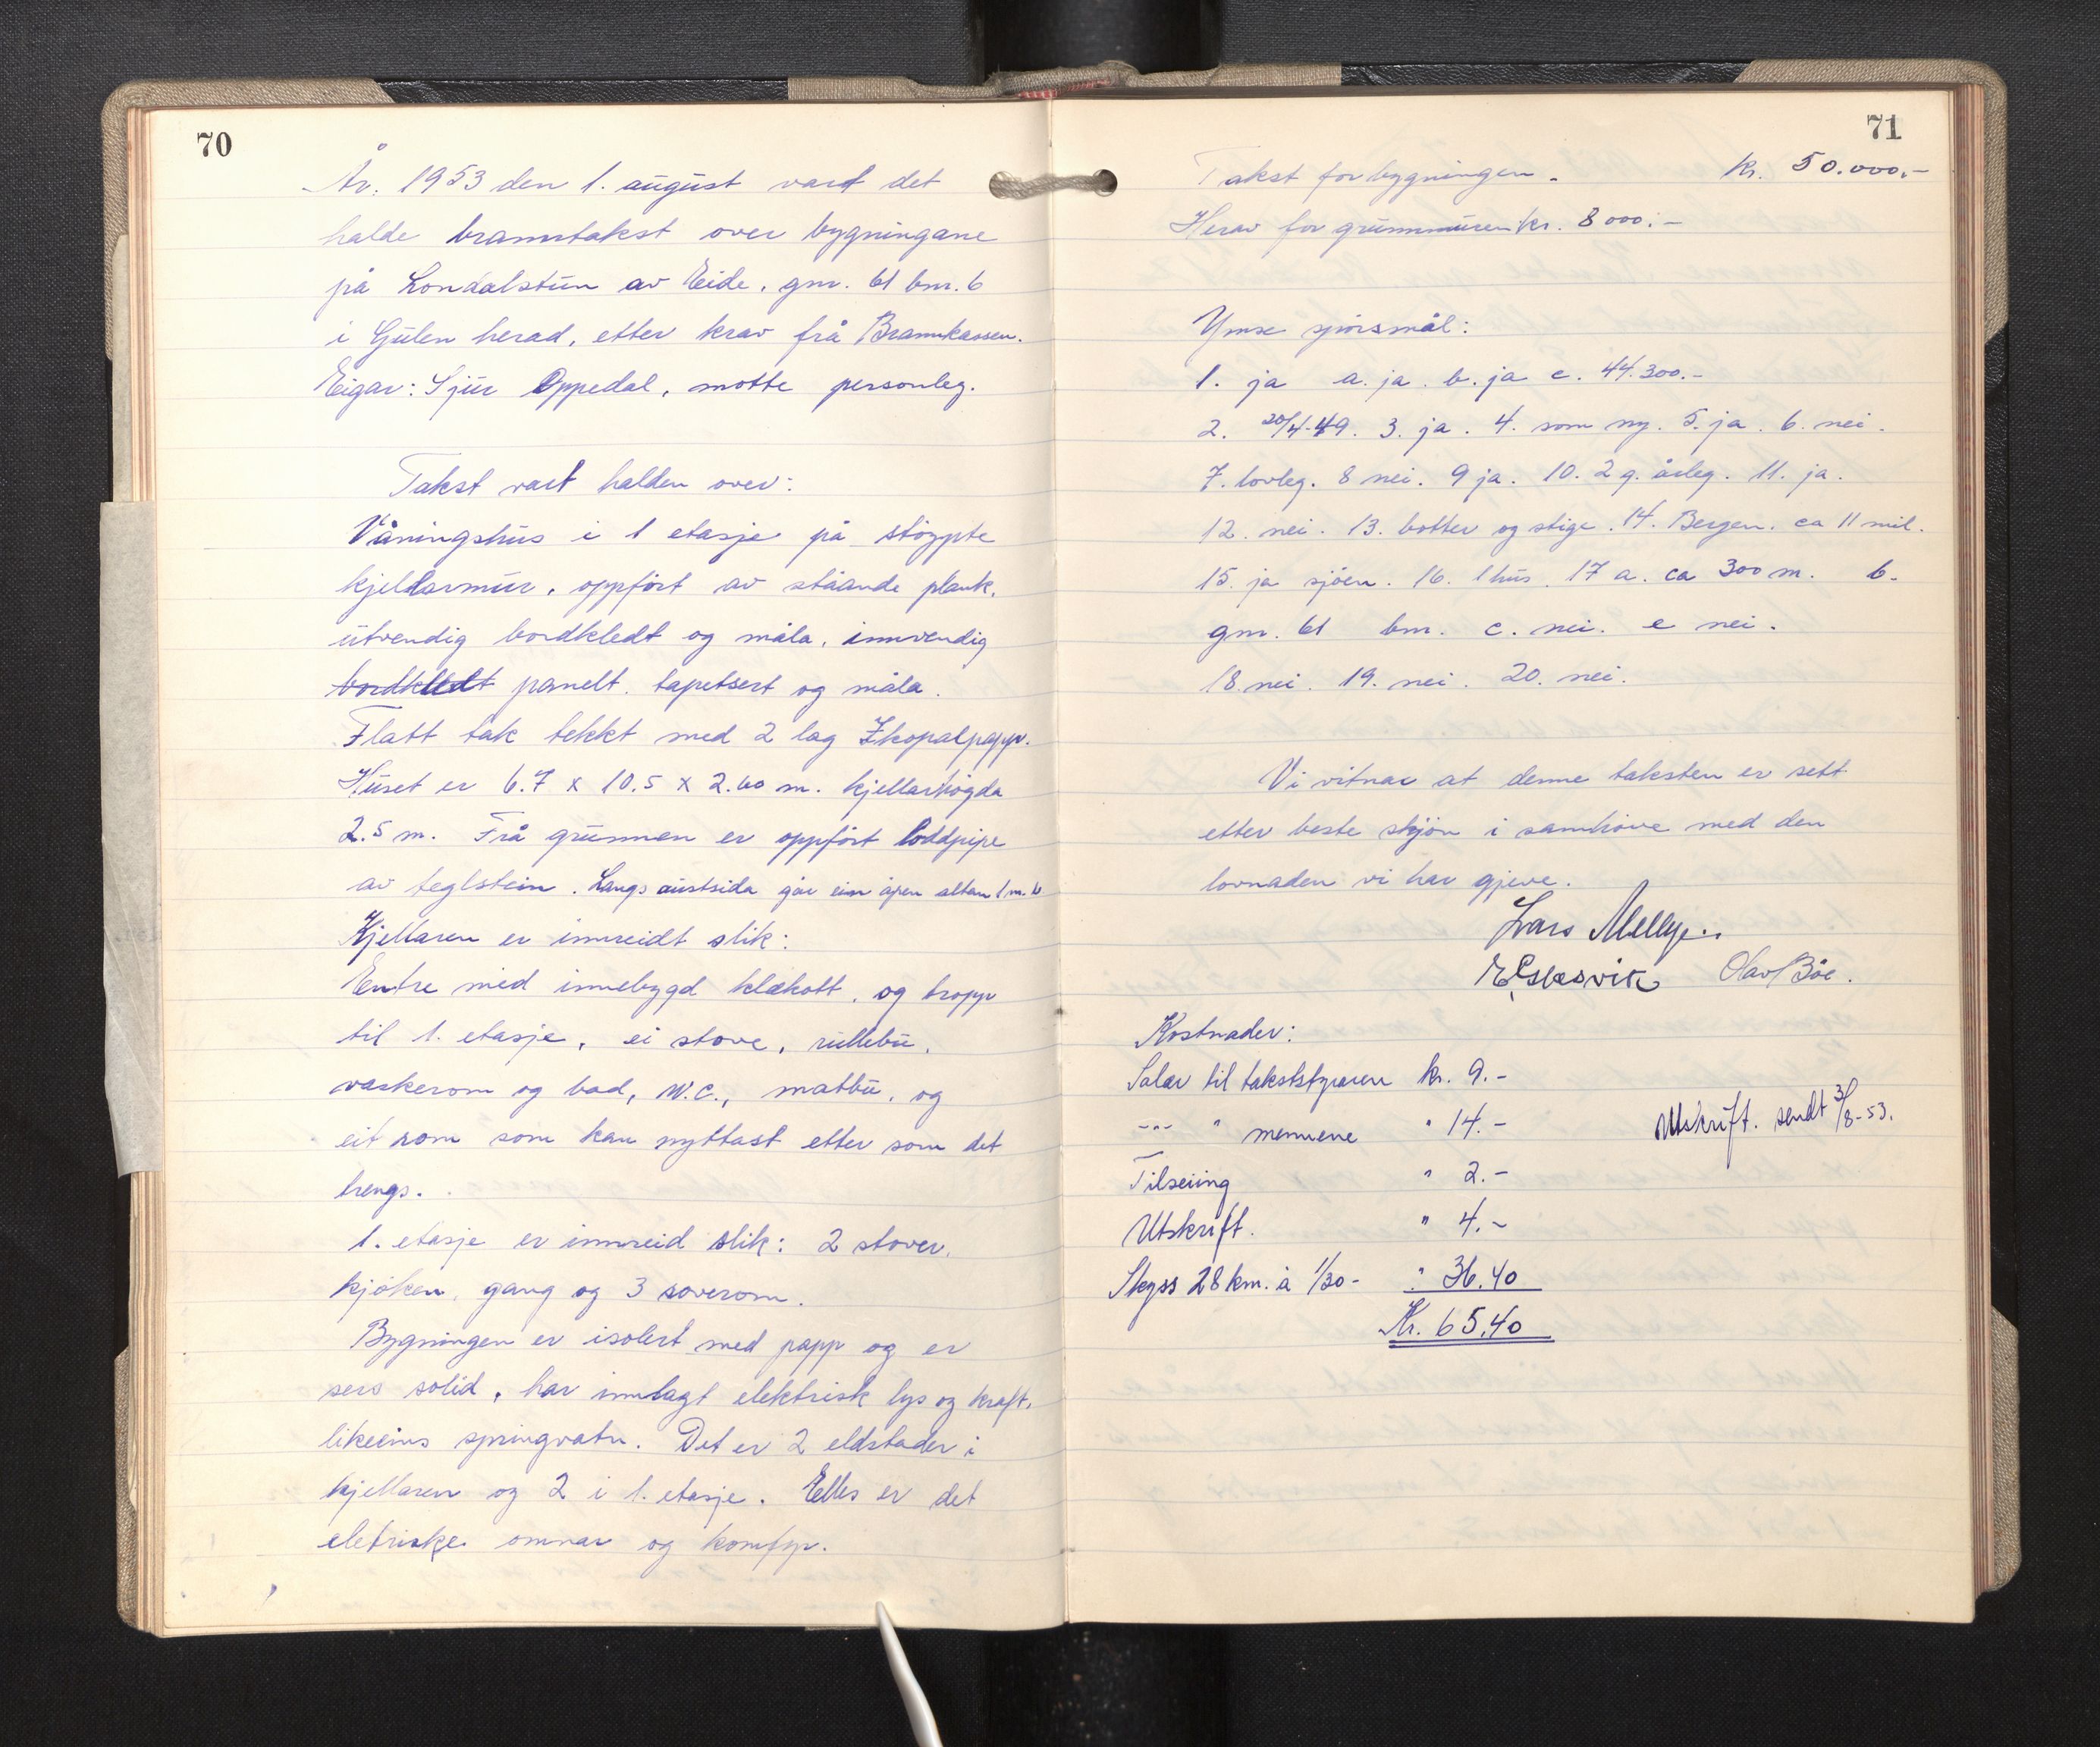 70
År. 1953 den 1. august vart det
halde branntakst over bygningane
på Londalstun av Eide, gnr. 61 bnr. 6
i Gulen herad, etter krav frå Brannkassen.
Eigar: Sjur Oppedal, møtte personleg.
Takst vart halden over:
Våningshus i 1 etasje på støypte
kjellarmur, oppført av ståande plank,
utvendig bordkledt og måla, innvendig
bordkledt panelt, tapetsert og måla.
Flatt tak tekkt med 2 lag Ikopalpapp.
Huset er 6.7 x 10.5 x 2.60 m. kjellarhøgda
2.5 m. Frå grunnen er oppført loddpipe
av teglstein. Langs austsida går ein åpen altan 1 m. b
Kjellaren er innreidt slik:
Entre med innebygd klekott, og tropp
til 1. etasje, ei stove, rullebu,
vaskerom og bad, W.C., matbu, og
eit rom som kan nyttast etter som det
trengs.
1. etasje er innreid slik: 2 stover,
kjøken, gang og 3 soverom.
Bygningen er isolert med papp og er
sers solid, har innlagt elektrisk lys og kraft,
likeeins springvatn. Det er 2 eldstader i
kjellaren og 2 i 1. etasje. Elles er det
eletriske omnar og komfyr.
71
Takst for bygningen. kr. 50.000.-
Herav for grunnmuren kr. 8000.-
Ymse spørsmål:
1. ja a. ja. b. ja c. 44.300.-
2. 20/4-49. 3. ja. 4. som ny. 5. ja. 6. nei.
7. lovleg. 8 nei. 9 ja. 10. 2 g. årleg. 11. ja.
12. nei. 13. bøtter og stige. 14. Bergen. ca 11 mil.
15. ja sjøen. 16. 1 hus. 17 a. ca 300 m. b.
gnr. 61 bnr. c. nei. e nei.
18. nei. 19. nei. 20. nei.
Vi vitnar at denne taksten er sett
etter beste skjøn i samhøve med den
lovnaden vi har gjeve.
Lars Mellye.
Olav Bøe.
Kostnader:
Salær til takststyraren kr. 9.-
-"- " mennene " 14.-
Utskrift. sendt 3/8-53.
Tilseiing " 2.-
Utskrift. " 4.-
Skyss 28 km. à 1/30- " 36.40
Kr. 65.40